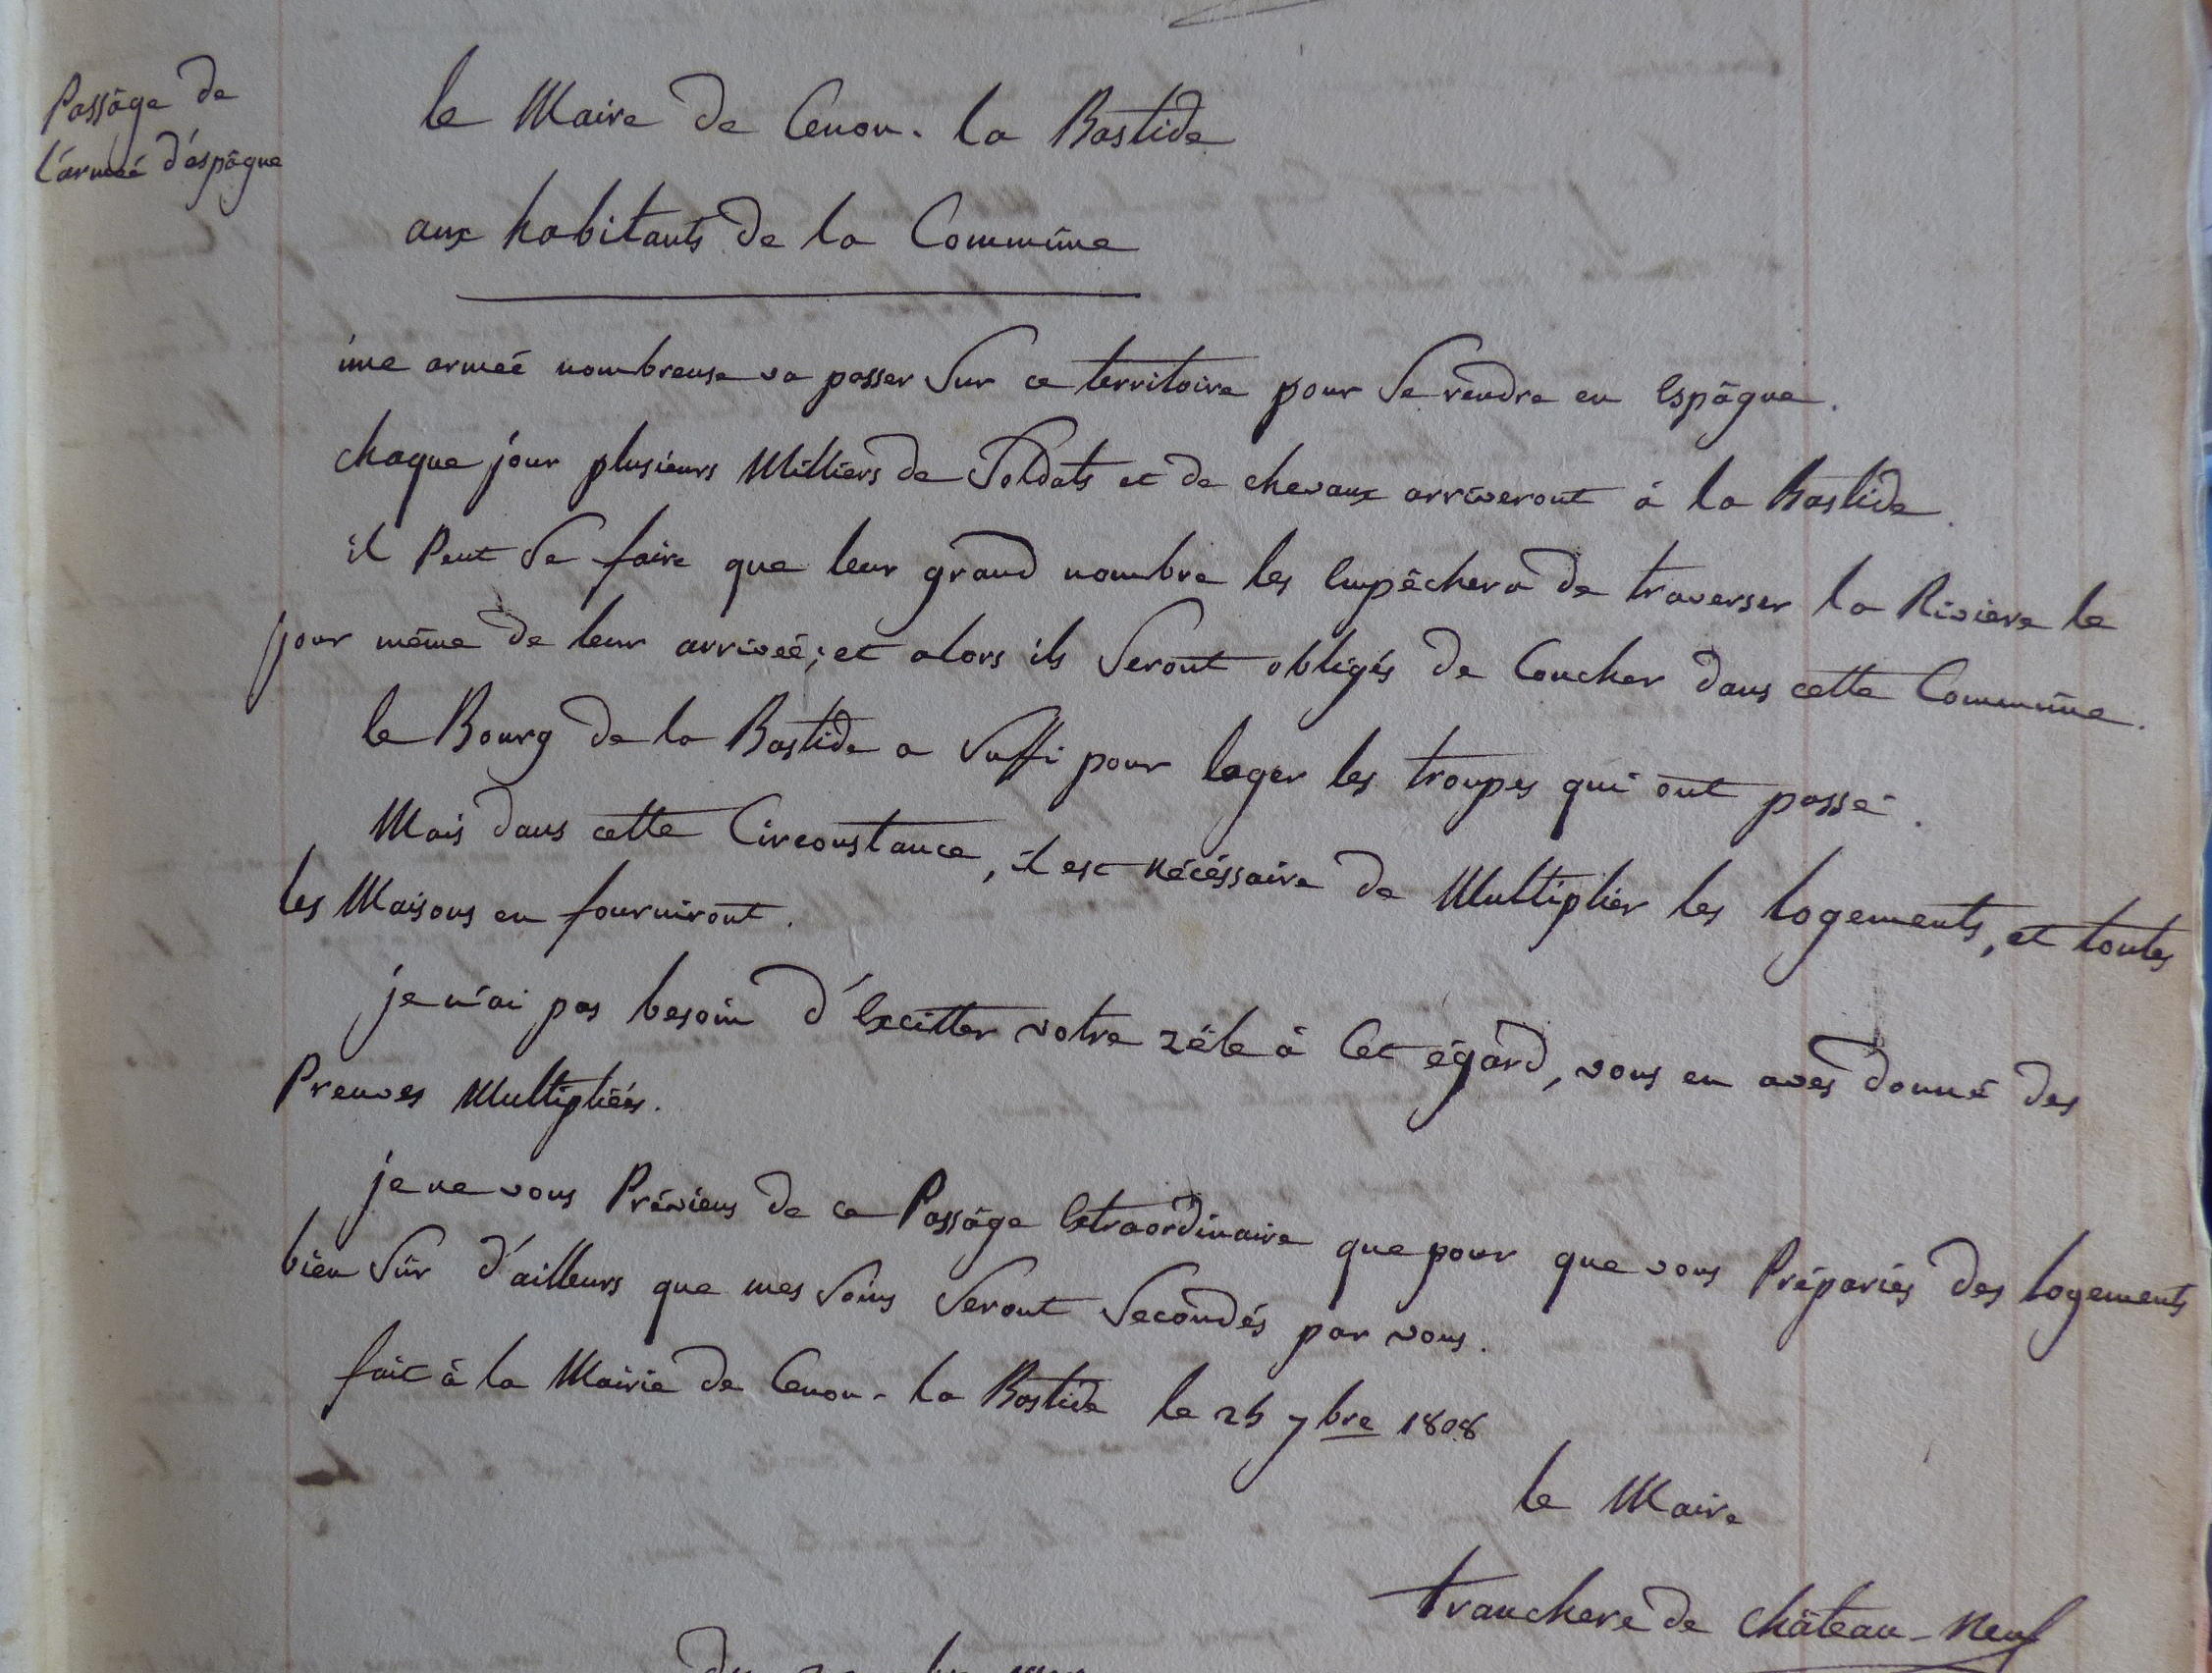 Passâge de
l'armeé d'éspâgne
le Maire de Cenon-la Bastide
aux habitants de la Commûne
une armeé nombreuse va passer Sur ce territoire pour Se rendre en Espâgne.
chaque jour plusieurs Milliers de Soldats et de chevaux arriveront à la Bastide.
il Peut Se faire que leur grand nombre les Empêchera de traverser la Riviere le
jour même de leur arriveé; et alors ils Seront obligés de Coucher dans cette Commûne.
le Bourg de la Bastide a Suffi pour loger les troupes qui ont passé.
Mais dans cette Circonstance, il est nécéssaire de Multiplier les logements, et toutes
les Maisons en fourniront.
je n'ai pas besoin d'Exciter votre zéle à Cet égard, vous en avés donné des
Preuves Multipliéés.
je ne vous Préviens de ce Passâge Extraordinaire que pour que vous Prépariés des logements
bien Sûr d'ailleurs que mes Soins Seront Secondés par vous.
fait à la Mairie de Cenon-la Bastide le 25 7bre 1808
le Maire
tranchere de château-neuf